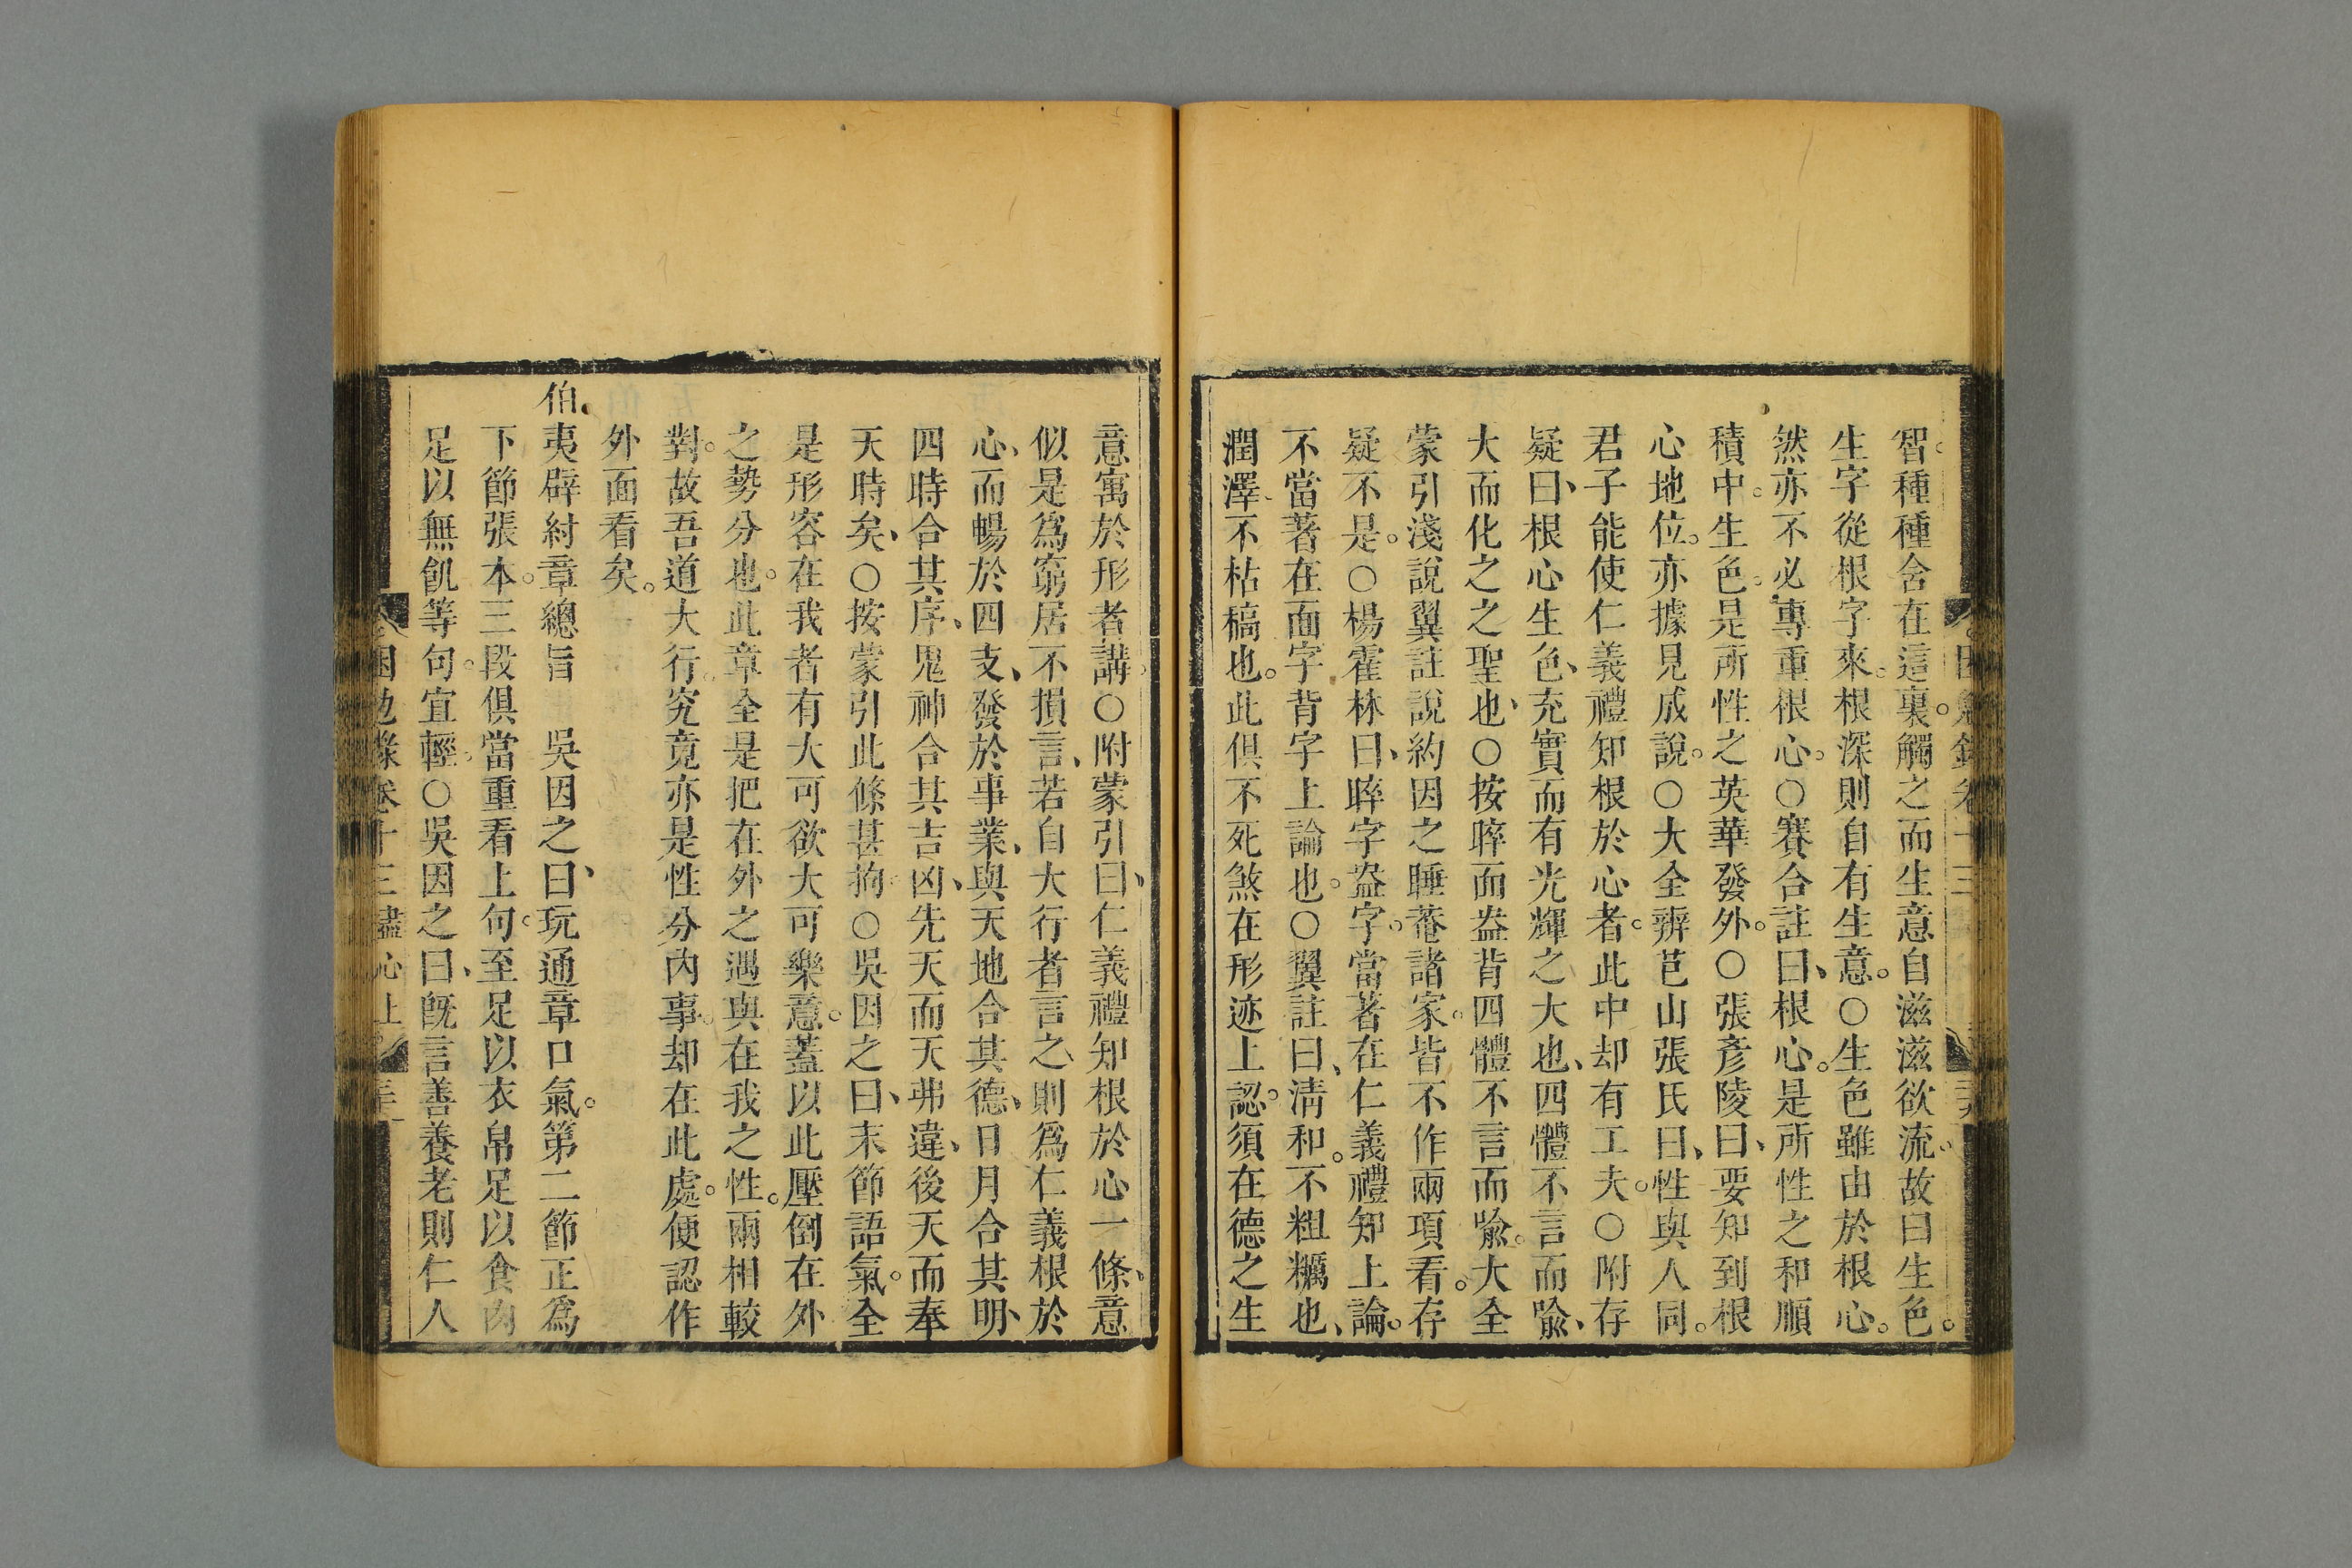 智。種種舍在這裏。觸之而生意自滋滋欲流。故曰生色。
生字從根字來。根深則自有生意。○生色雖由於根心。
然亦不必專重根心。○賽合註曰、根心。是所性之和順
積中。生色。是所性之英華發外。○張彥陵曰、要知到根
心地位。亦據見成說。○大全辨芑山張氏曰、性與人同。
君子能使仁義禮知根於心者。此中却有工夫。○附存
疑曰、根心生色、充實而有光輝之大也、四體不言而喩、
大而化之之聖也、○按睟面盎背四體不言而喩。大全
蒙引淺說翼註說約因之睡菴諸家。皆不作兩項看。存
疑不是。○楊霍林曰、睟字盎字。當著在仁義禮知上論。
不當著在面字背字上論也。○翼註曰、淸和。不粗糲也、
潤澤、不枯稿也。此俱不死煞在形迹上認。須在德之生
意寓於形者講。○附蒙引曰、仁義禮知根於心一條、意
似是爲窮居不損言、若自大行者言之、則爲仁義根於
心、而暢於四支、發於事業、與天地合其德、日月合其明、
四時合其序、鬼神合其吉凶、先天而天弗違、後天而奉
天時矣、○按蒙引此條甚拘。○吳因之曰、末節語氣。全
是形容在我者有大可欲大可樂意。蓋以此壓倒在外
之勢分也。此章全是把在外之遇與在我之性。兩相較
對。故吾道大行。究竟亦是性分內事。却在此處。便認作
外面看矣。
伯夷辟紂章總旨　吳因之曰、玩通章口氣。第二節正爲
下節張本。三段俱當重看上句。至足以衣帛足以食肉
足以無飢等句。宜輕。○吳因之曰、旣言善養老則仁人
困勉錄卷十三 盡心上